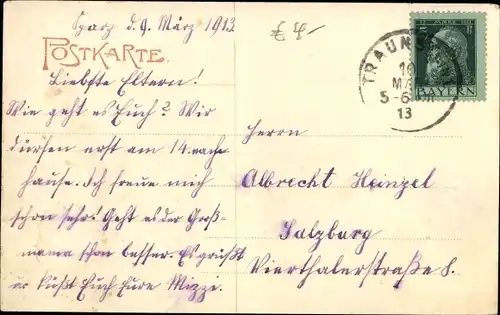 Sparz d. 9. März 1913
£ 4-
POSTKARTE.
Liebste Eltern!
Wie geht es Euch? Wir
dürfen erst am 14. nach
hause. Ich freue mich
schon sehr! Geht es der Groß-
mama schon besser. Es grüßt
u. küßt Euch Eure Mizzi.
TRAUNS
10
MÄ
5-6
13
BAYERN
Herrn
Albrecht Heinzel
Salzburg
Vierthalerstraße 8.